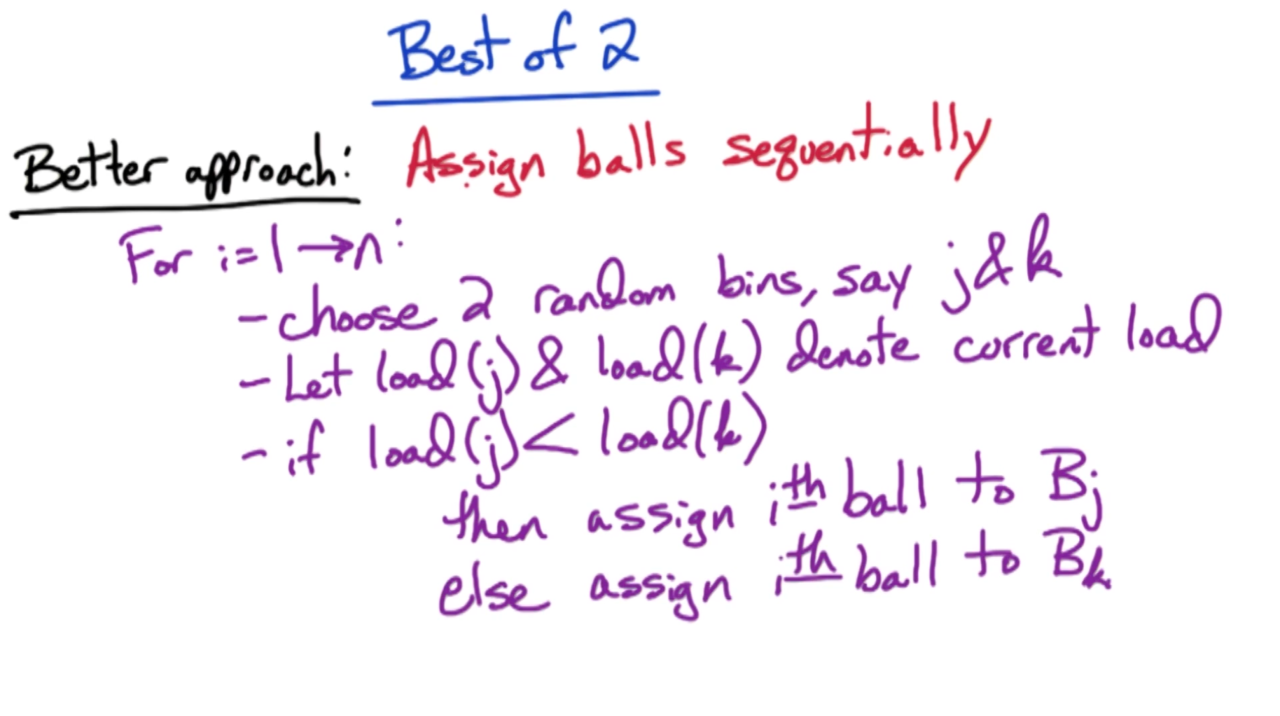 Best of 2
Better approach: Assign balls sequentially
For i=1→n:
- choose 2 random bins, say j & k
- Let load(j) & load(k) denote current load
- if load(j) < load(k)
then assign ith ball to Bj
else assign ith ball to Bk